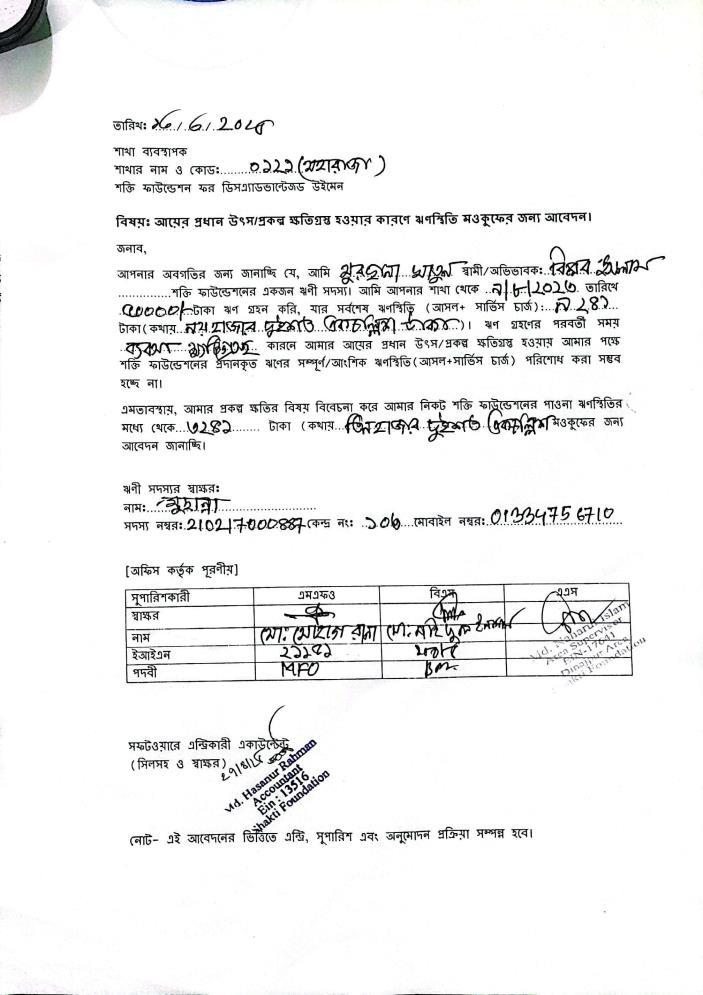 তারিখ: ২৬/6/2025
শাখা ব্যবস্থাপক
শাখার নাম ও কোড:........০১১১ (মহারাজা)
শক্তি ফাউন্ডেশন ফর ডিসএ্যাডভান্টেজড উইমেন
বিষয়: আয়ের প্রধান উৎস/প্রকল্প ক্ষতিগ্রস্থ হওয়ার কারণে ঋণস্থিতি মওকুফের জন্য আবেদন।
জনাব,
আপনার অবগতির জন্য জানাচ্ছি যে, আমি স্বামী/অভিভাবক:
..............শক্তি ফাউন্ডেশনের একজন ঋণী সদস্য। আমি আপনার শাখা থেকে তারিখে
টাকা ঋণ গ্রহন করি, যার সর্বশেষ ঋণস্থিতি (আসল+ সার্ভিস চার্জ):
টাকা(কথায় নয় হাজার দুইশত একচল্লিশ টাকা)। ঋণ গ্রহণের পরবর্তী সময়
ব্যবসা কারনে আমার আয়ের প্রধান উৎস/প্রকল্প ক্ষতিগ্রস্থ হওয়ায় আমার পক্ষে
শক্তি ফাউন্ডেশনের প্রদানকৃত ঋণের সম্পূর্ণ/আংশিক ঋণস্থিতি(আসল+সার্ভিস চার্জ) পরিশোধ করা সম্ভব
হচ্ছে না।
এমতাবস্থায়, আমার প্রকল্প ক্ষতির বিষয় বিবেচনা করে আমার নিকট শক্তি ফাউন্ডেশনের পাওনা ঋণস্থিতির
মধ্যে থেকে...৩২৪১........ টাকা (কথায়...তিন হাজার দুইশত একচল্লিশ মওকুফের জন্য
আবেদন জানাচ্ছি।
ঋণী সদস্যর স্বাক্ষর:
নাম:
সদস্য নম্বর: 210217000887 কেন্দ্র নং: ১০৬ মোবাইল নম্বর: 01334756710
[অফিস কর্তৃক পূরণীয়]
সুপারিশকারী এমএফও বিএম এএস
স্বাক্ষর
নাম মো: সোহেল রানা মো: ইসলাম Md. Naharul Islam
ইআইএন Area Supervisor
EIN-17641
পদবী MFO BM Dinajpur Area
Shakti Foundation
সফটওয়ারে এন্ট্রিকারী একাউন্টেন্ট
(সিলসহ ও স্বাক্ষর)
Md. Hasanur Rahman
Accountant
Ein : 13516
Shakti Foundation
নোট- এই আবেদনের ভিত্তিতে এন্ট্রি, সুপারিশ এবং অনুমোদন প্রক্রিয়া সম্পন্ন হবে।